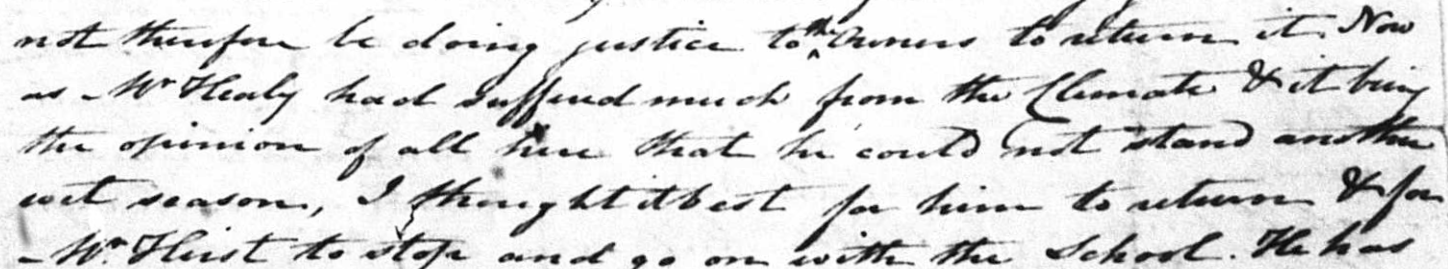 not therefore be doing justice to the Owners to return it. Now
as Mr Healy had sufferd much from the Climate & it being
the opinion of all here that he could not stand another
wet season, I thought it best for him to return & for
Mr. Heist to stop and go on with the School. He has